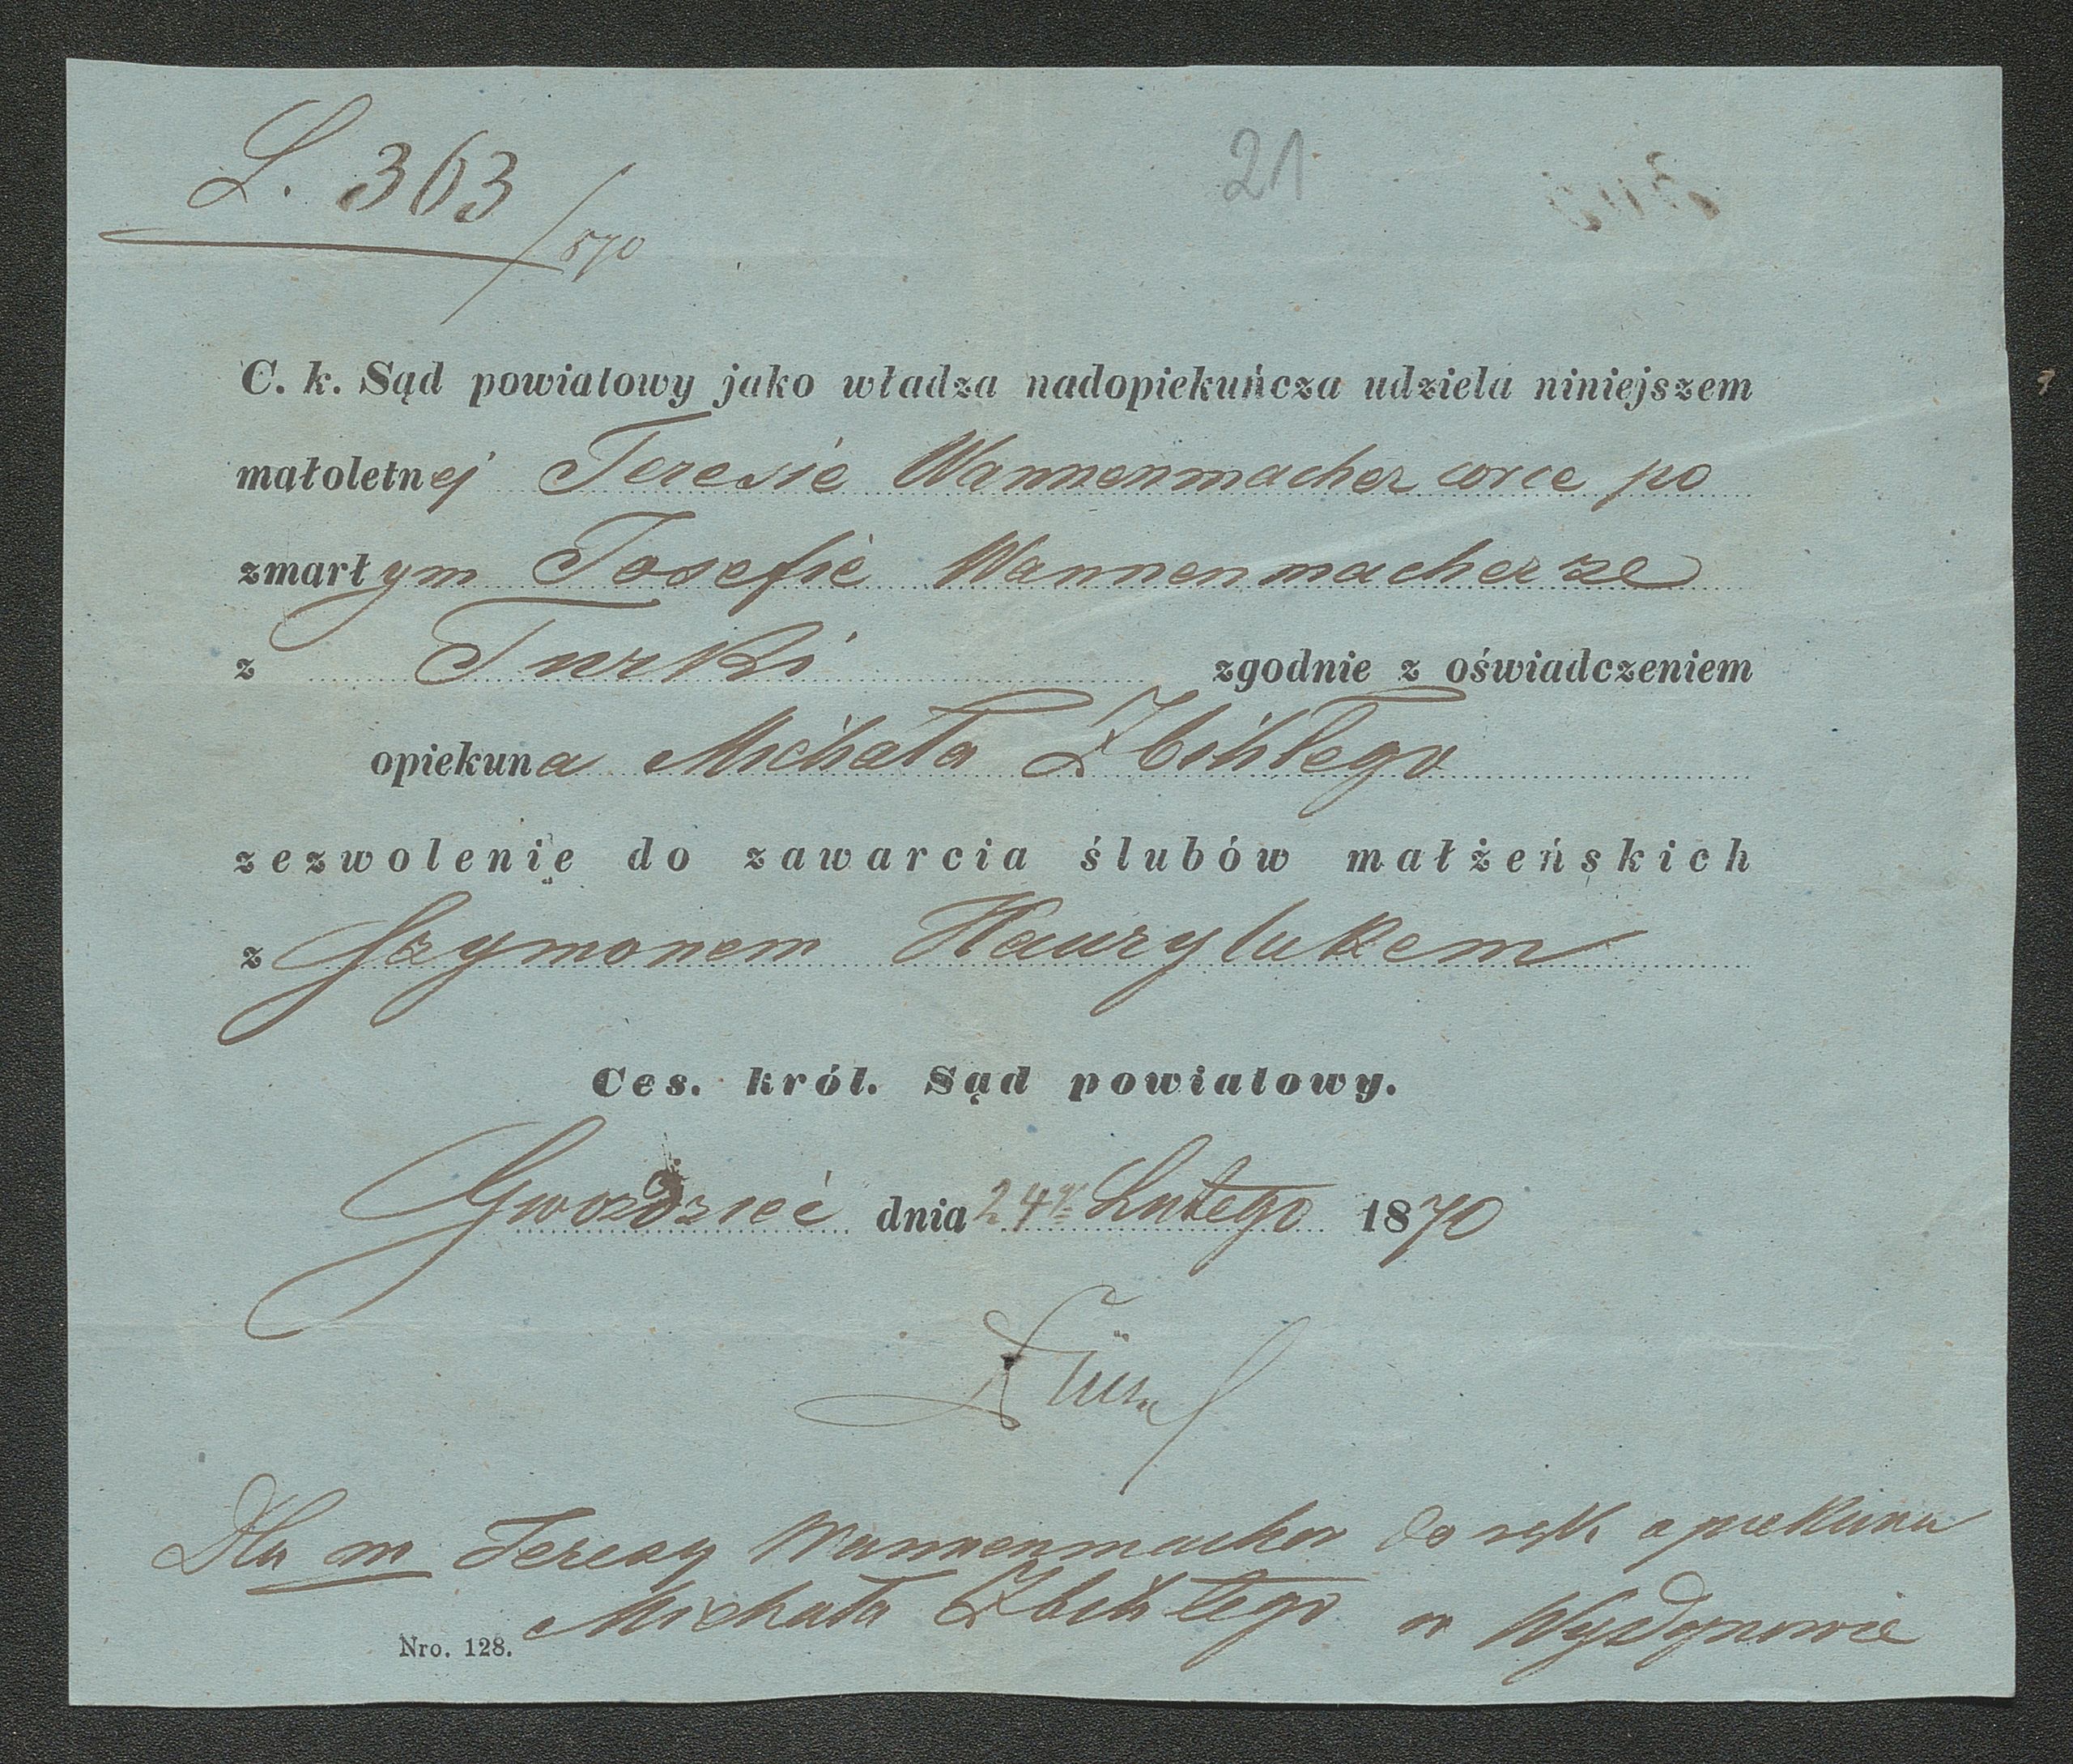 L. 363/870
21
C. k. Sąd powiatowy jako władza nadopiekuńcza udziela niniejszem
małoletnej Teresie Wannenmacher corce po
zmarłym Josefie Wannenmacherze
z Turki zgodnie z oświadczeniem
opiekuna Michała Zbihłego
zezwolenie do zawarcia ślubów małżeńskich
z Szymonem Hawrylukem
Ces. król. Sąd powiatowy.
Gwoździec dnia 24go Lutego 1870
Dla m Teresy Wannenmacher do rąk opiekuna
Michała Zbihłego w
Nro. 128.